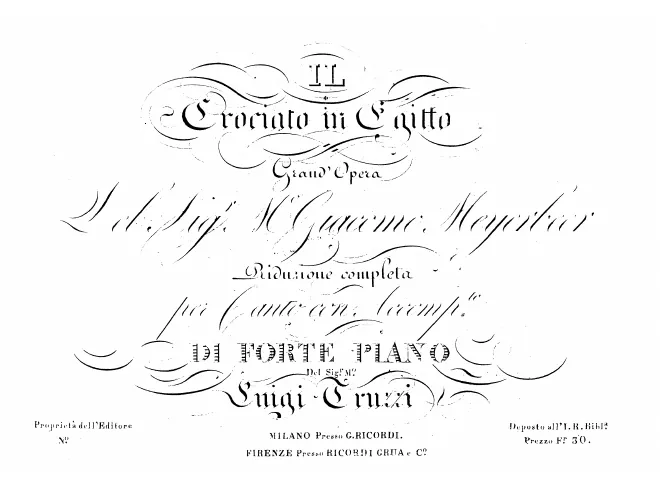 IL
Crociato in Egitto
Grand' Opera
Del Sigr. Mo. Giacomo Meyerbeer
Riduzione completa
per Canto con Accompto.
DI FORTE PIANO
Del Sigr. Mo.
Luigi Truzzi
Proprietà dell'Editore
No.
MILANO Presso G.RICORDI.
FIRENZE Presso RICORDI GRUA e Co.
Deposto all'I. R. Bibla.
Prezzo Fr. 30.